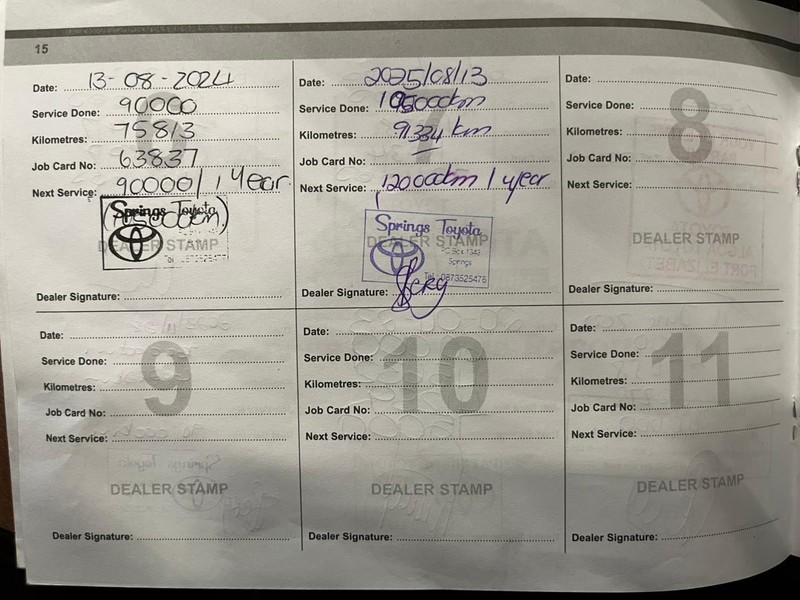 15
Date: 13-08-2024
Service Done: 90000
Kilometres: 75813
Job Card No: 63837
Next Service: 90000/1 Year
Springs Toyota
DEALER STAMP
Dealer Signature:
Date: 2025/08/13
Service Done: 105000km
Kilometres: 91334 km
Job Card No:
Next Service: 120000km / year
7
Springs Toyota
P.O Box 1343
Springs
DEALER STAMP
Tel: 0873525476
Dealer Signature:
Date:
Service Done:
8
Kilometres:
Job Card No:
Next Service:
DEALER STAMP
Dealer Signature:
Date:
Service Done:
9
Kilometres:
Job Card No:
Next Service:
DEALER STAMP
Dealer Signature:
Date:
Service Done:
10
Kilometres:
Job Card No:
Next Service:
DEALER STAMP
Dealer Signature:
Date:
Service Done:
11
Kilometres:
Job Card No:
Next Service:
DEALER STAMP
Dealer Signature: